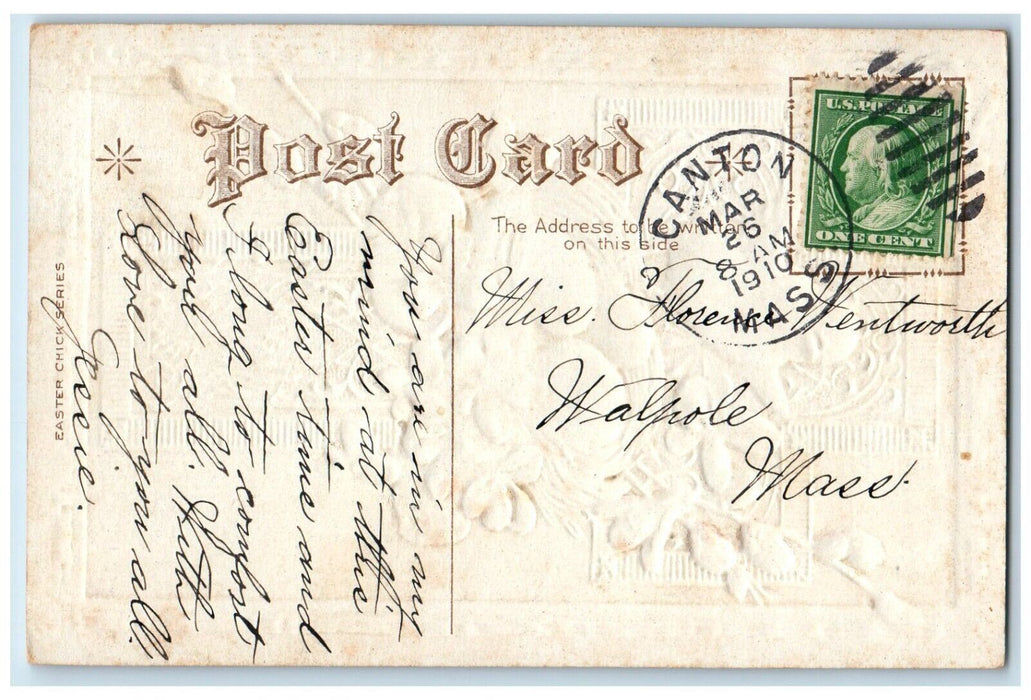 Post Card
The Address to be written
on this side
CANTON
MAR
26
8 AM
1910
MASS
U.S. POSTAGE
ONE CENT
Miss. Florence Wentworth
Walpole
Mass.
You are in my
mind at this
Easter time and
I long to comfort
you all. With
Love to you all.
Jessie.
EASTER CHICK SERIES